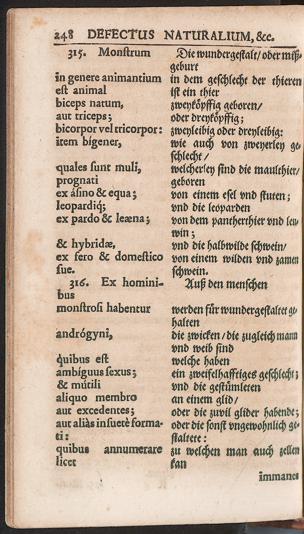 248 DEFECTUS NATURALIUM, &c.
315. Monstrum
Die wundergestalt/oder miß-
geburt
in genere animantium
in dem geschlecht der thieren
est animal
ist ein thier
biceps natum,
zweyköpffig geboren/
aut triceps;
oder dreyköpffig;
bicorpor vel tricorpor:
zweyleibig oder dreyleibig:
item bigener,
wie auch von zweyerley ge-
schlecht/
quales sunt muli,
welcherley sind die maulthier/
prognati
geboren
ex asino & equa;
von einem esel vnd stuten;
leopardiq́;
vnd die leoparden
ex pardo & leæna;
von dem pantherthier vnd leu-
win;
& hybridæ,
vnd die halbwilde schwein/
ex fero & domestico
von einem wilden vnd zamen
sue.
schwein.
316. Ex homini-
Auß den menschen
bus
monstrosi habentur
werden für wundergestaltet ge-
halten
andrógyni,
die zwicken/die zugleich mann
vnd weib sind
quibus est
welche haben
ambiguus sexus;
ein zweifelhafftiges geschlecht;
& mútili
vnd die gestümleten
aliquo membro
an einem glid/
aut excedentes;
oder die zuvil glider habende;
aut aliàs insuetè forma-
oder die sonst vngewohnlich ge-
ti:
staltete:
quibus annumerare
zu welchen man auch zellen
licet
kan
immanes